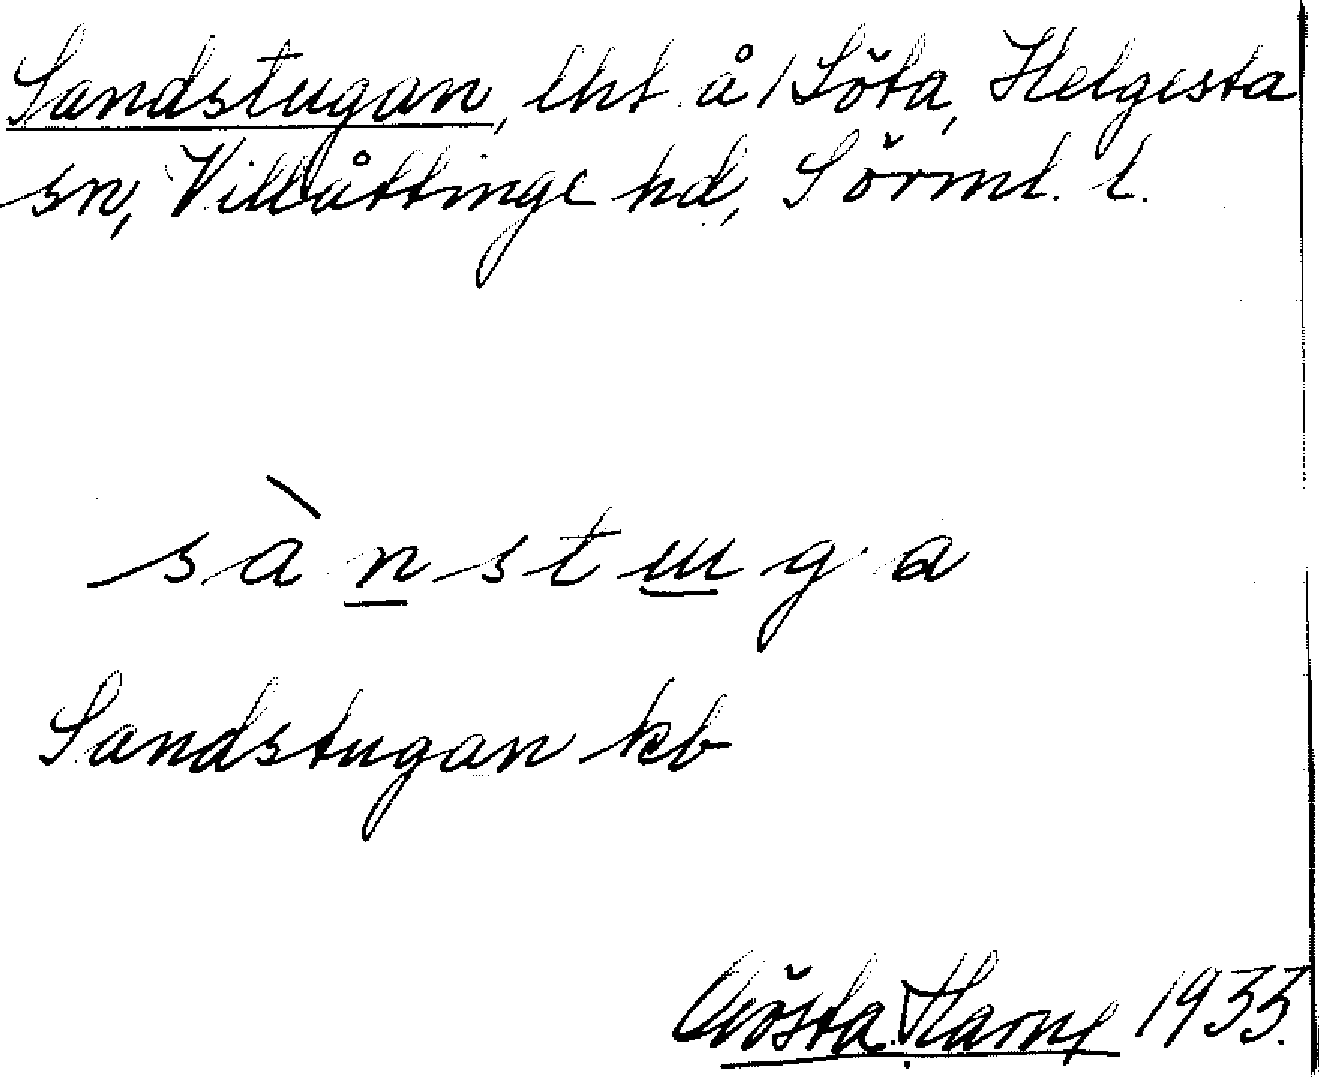 Sandstugan, lht å Söta, Helgesta
sn, Villåttinge hd, Sörml. l.
sànstuga
Sandstugan kb
Gösta Harne 1933.